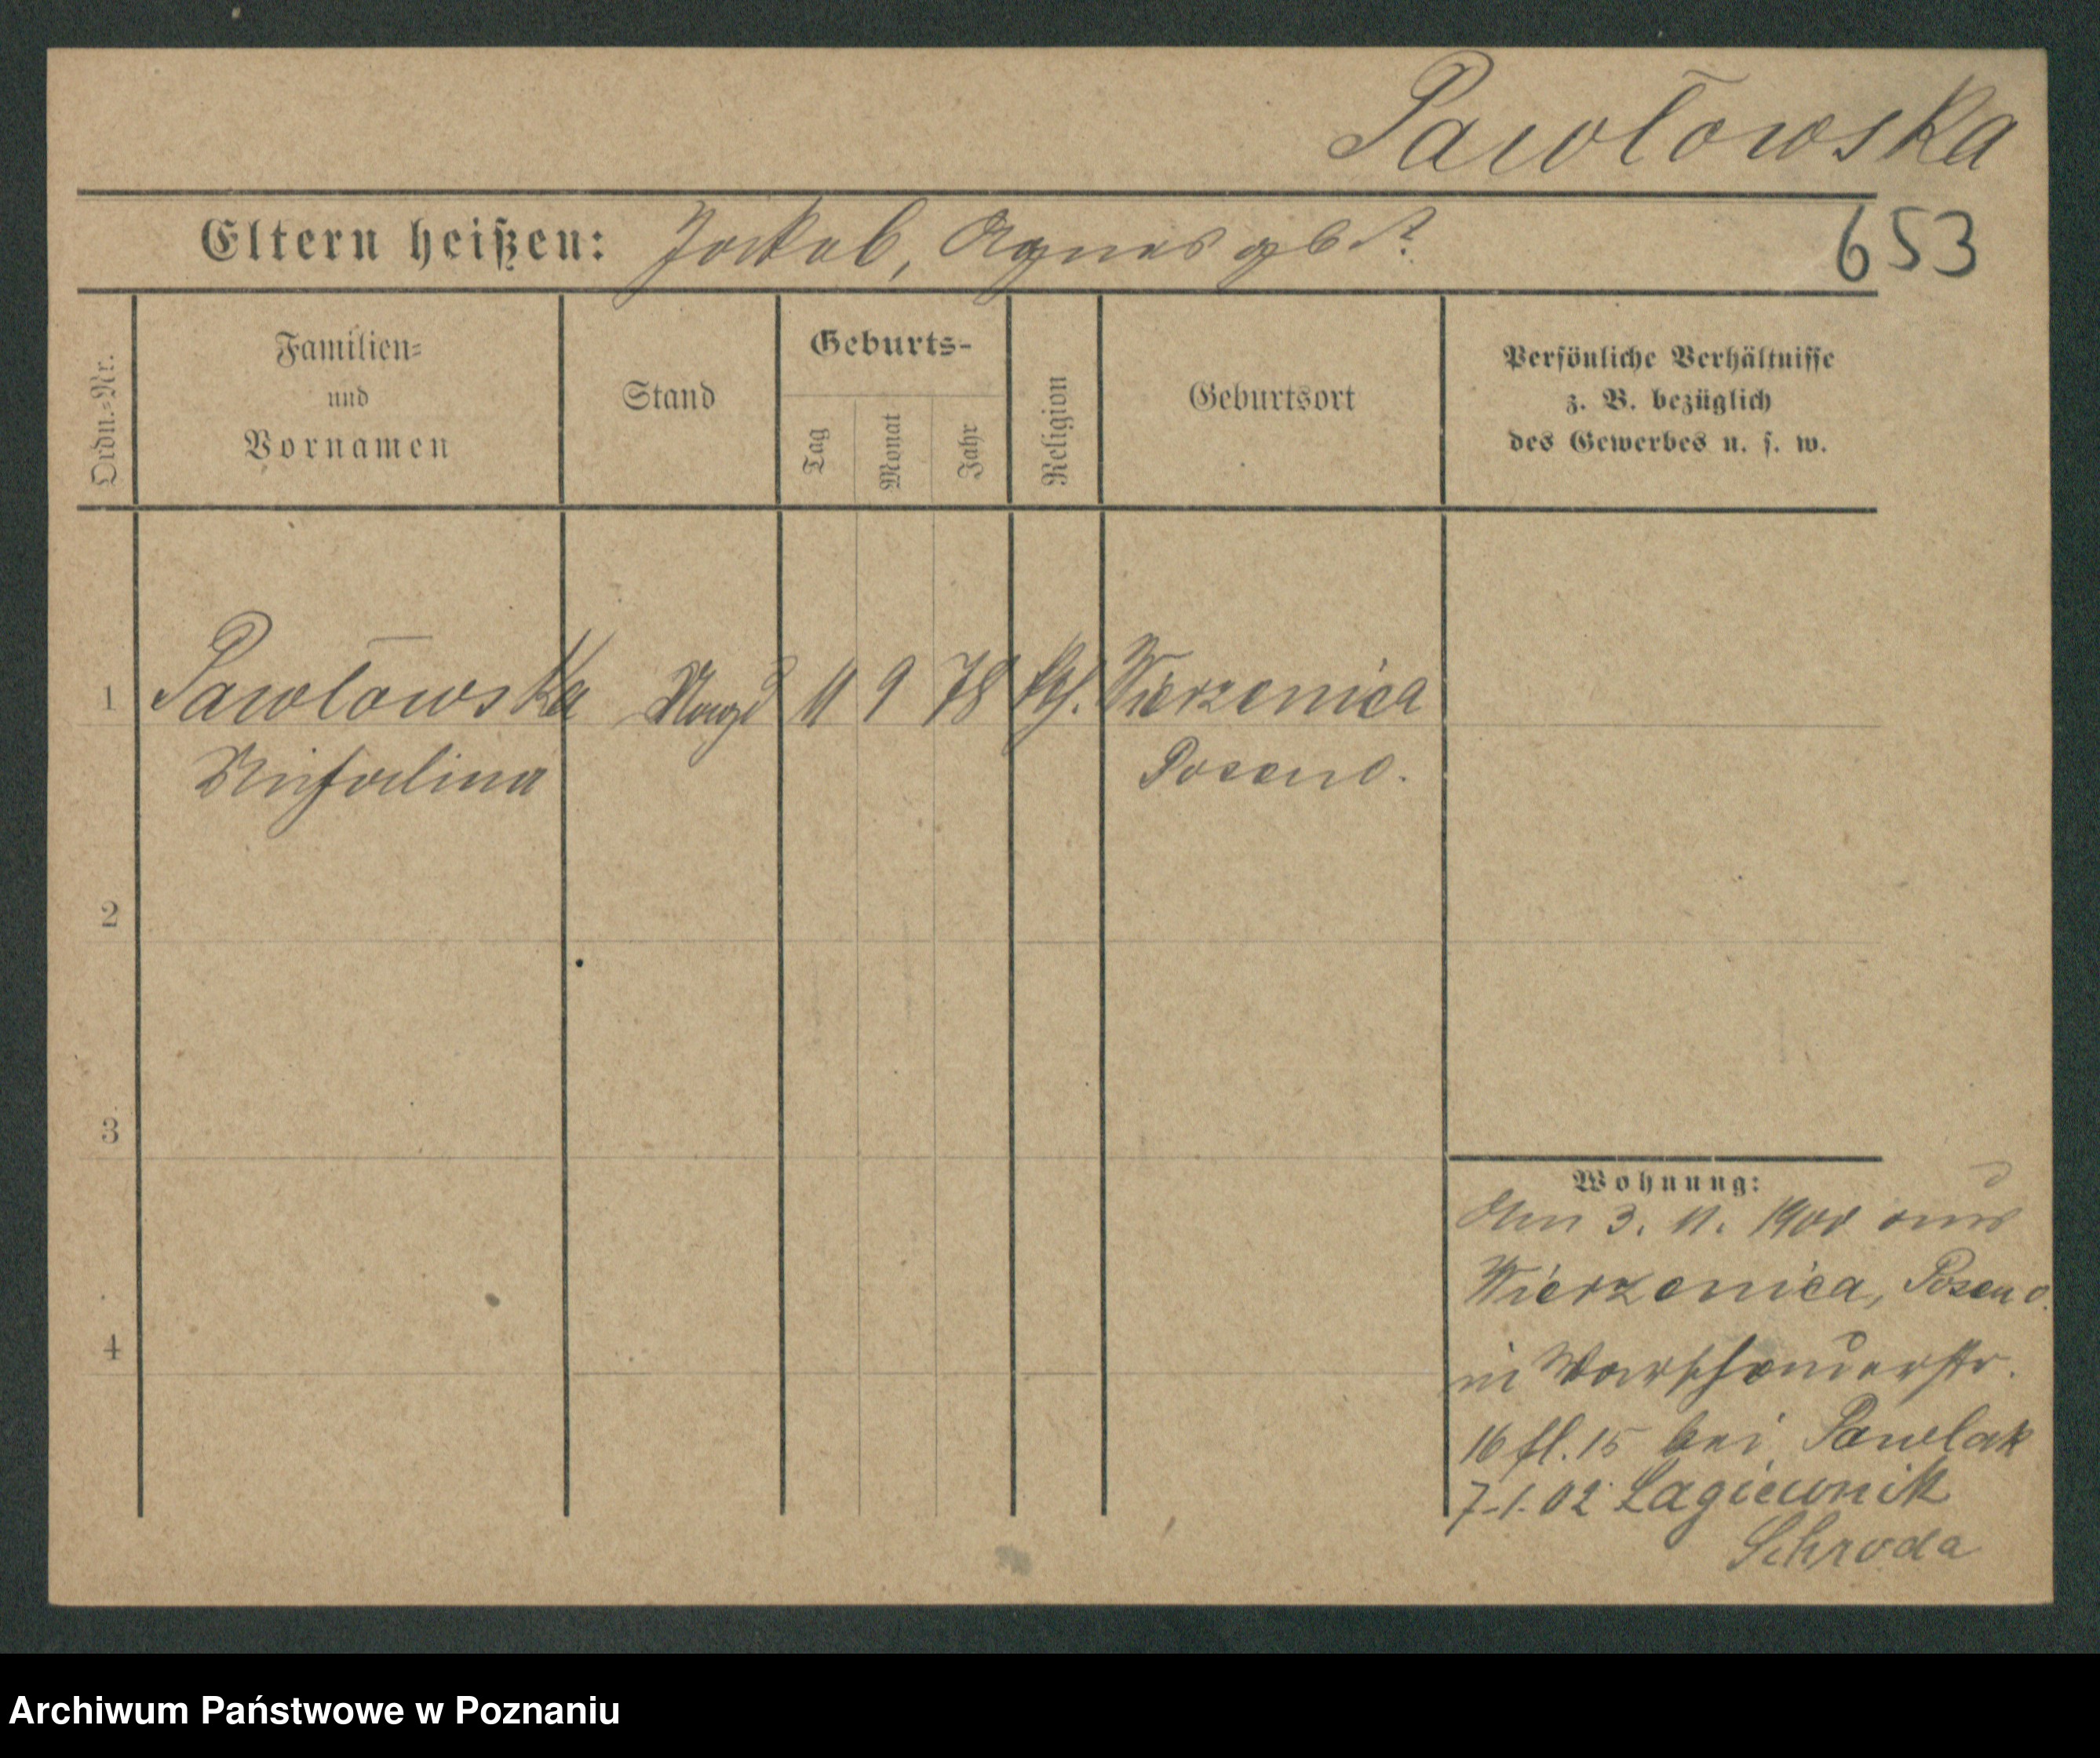 Pawlowska
Eltern heißen: Jakob, Agnes gb. ?
653
Ordn.=Nr.
Familien=
und
Vornamen
Stand
Geburts-
Tag
Monat
Jahr
Religion
Geburtsort
Persönliche Verhältnisse
z. B. bezüglich
des Gewerbes u. s. w.
1 Pawlowska Magd 11 9 78 kth. Wierzenica
Michalina Posen O.
2
3
4
Wohnung:
Am 3. 11. 1900 aus
Wierzenica, Posen O.
in Warschauerstr.
16 fl. 15 bei Pawlak
7.1.02 Lagiewnik
Schroda
Archiwum Państwowe w Poznaniu